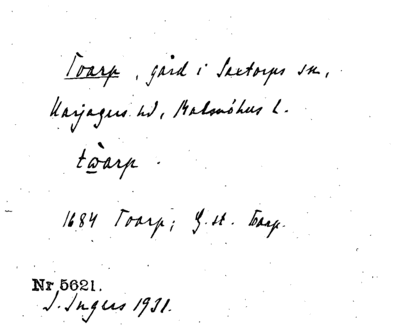 Toarp, gård i Saxtorps sn,
Harjagers hd, Malmöhus l.
tẁarp.
1684 Toarp; G. st. Toarp.
Nr 5621.
I. Ingers 1931.